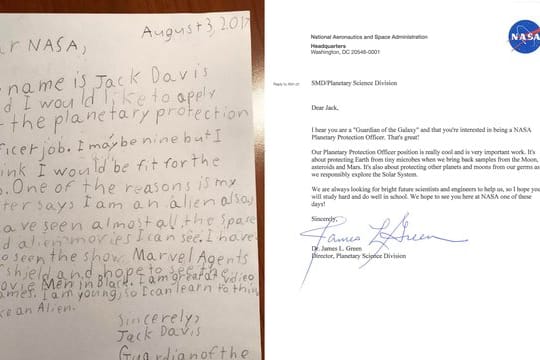 August 3, 2017
ar NASA,
name is Jack Davis
d I would like to apply
the planetary protection
ficer job. I may be nine but I
ink I would be fit for the
. One of the reasons is my
ter says I am an alien also,
ave seen almost all the space
d alien movies I can see. I have
o seen the show Marvel Agents
shield and hope to see the
ovie Men in Black. I am great at video
ames. I am young, so I can learn to thin
ke an Alien.
Sincerely,
Jack Davis
Guardian of the
National Aeronautics and Space Administration
Headquarters
Washington, DC 20546-0001
NASA
Reply to Attn of:
SMD/Planetary Science Division
Dear Jack,
I hear you are a "Guardian of the Galaxy" and that you're interested in being a NASA
Planetary Protection Officer. That's great!
Our Planetary Protection Officer position is really cool and is very important work. It's
about protecting Earth from tiny microbes when we bring back samples from the Moon,
asteroids and Mars. It's also about protecting other planets and moons from our germs as
we responsibly explore the Solar System.
We are always looking for bright future scientists and engineers to help us, so I hope you
will study hard and do well in school. We hope to see you here at NASA one of these
days!
Sincerely,
James L Green
Dr. James L. Green
Director, Planetary Science Division